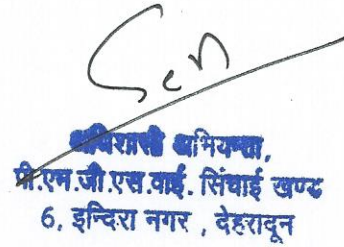 अधिशासी अभियन्ता,
पी.एम.जी.एस.वाई. सिंचाई खण्ड
6, इन्दिरा नगर , देहरादून